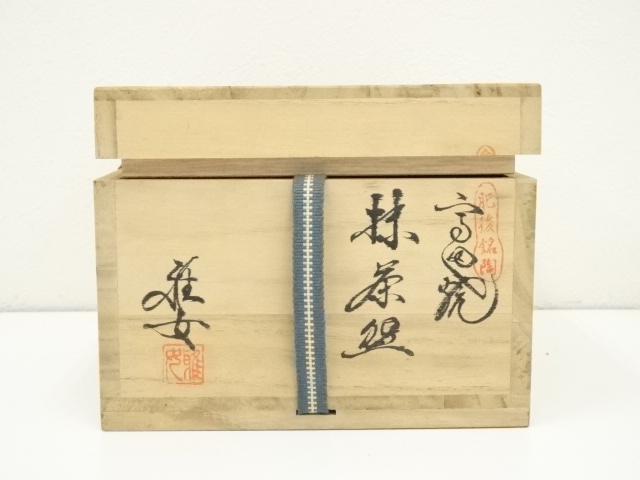 肥後銘陶
高田焼
抹茶盌
雅女